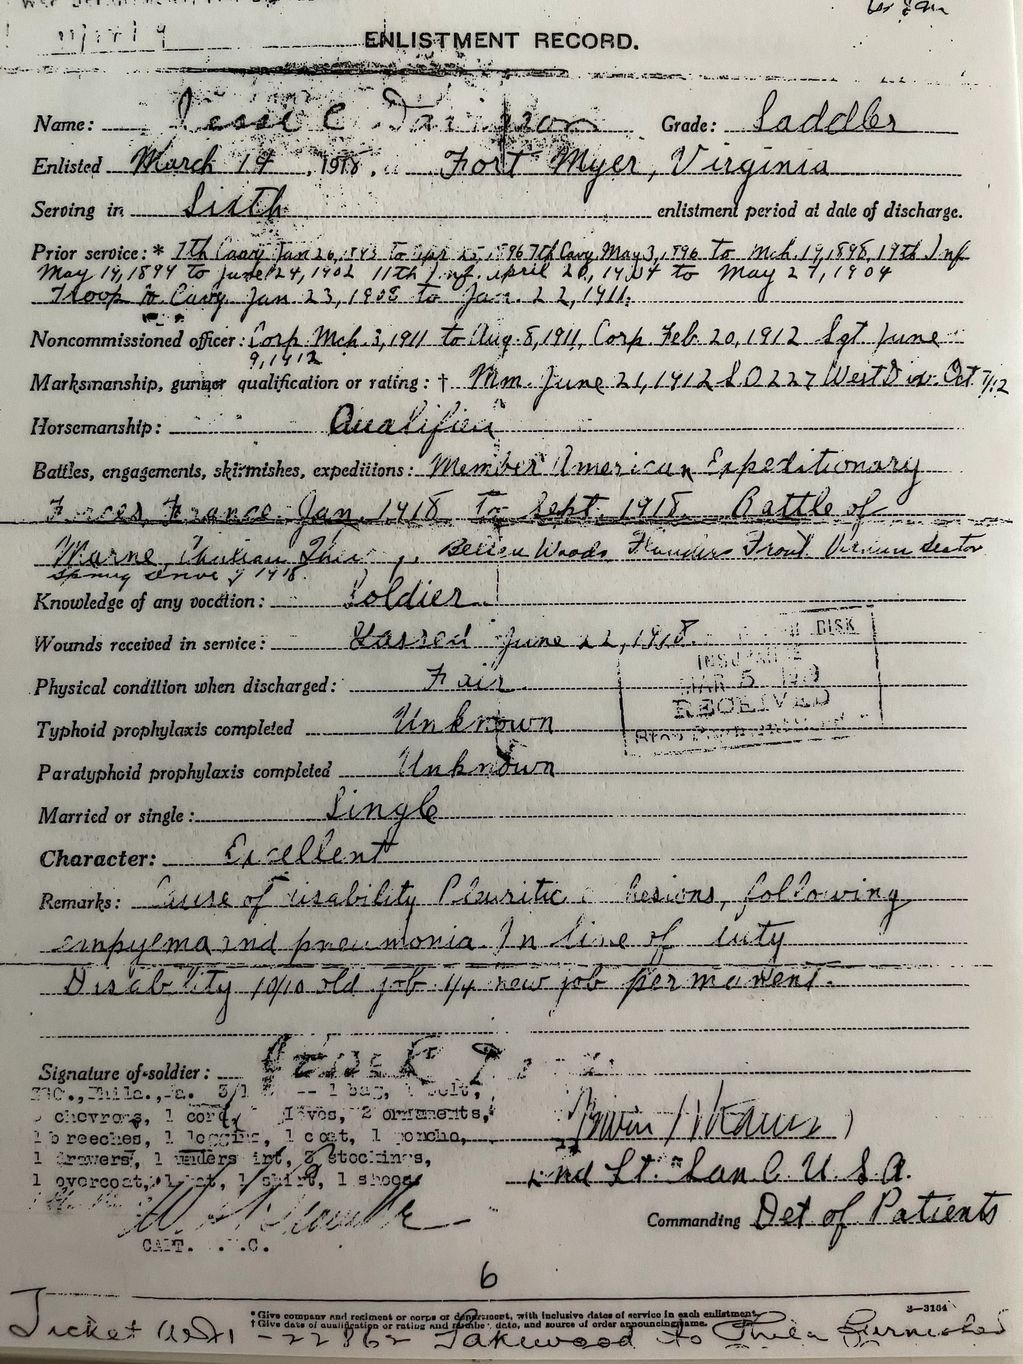 ENLISTMENT RECORD.
Name: Jesse C. Davidson Grade: Saddler
Enlisted March 19, 1918, Fort Myer, Virginia
Serving in Sixth enlistment period at date of discharge.
Prior service: * 7th Cavy Jan 26, to Apr 25, 1896 7th Cavy May 3, 1896 to Mch. 19, 1898, 19th Inf
May 19, 1899 to June 24, 1902 11th Inf. April 20, 1904 to May 27, 1904
Troop Cavy Jan 23, 1908 to Jan. 22, 1911.
Noncommissioned officer: Corp. Mch. 3, 1911 to Aug. 8, 1911, Corp. Feb. 20, 1912 Sgt June
9, 1912
Marksmanship, gunner qualification or rating: † Mm. June 21, 1912 S.O 227 West Div. Oct 7/12
Horsemanship: Qualified
Battles, engagements, skirmishes, expeditions: Member American Expeditionary
Forces, France. Jan. 1918 to Sept. 1918. Battle of
Marne, Belleau Woods Flanders Front Verdun Sector
Spring Drive of 1918.
Knowledge of any vocation: Soldier
Wounds received in service: Gassed June 22, 1918.
Physical condition when discharged: Fair
Typhoid prophylaxis completed Unknown
Paratyphoid prophylaxis completed Unknown
Married or single: Single
Character: Excellent
Remarks: Cause of disability Pleuritic adhesions, following
empyema and pneumonia. In line of duty
Disability 10/10 old job 1/4 new job permanent.
RISK
INSURANCE
MAR 5 1919
RECEIVED
Signature of soldier:
Phila., Pa. 3/1 -- 1 bag, 1 belt,
chevrons, 1 cord, gloves, 2 ornaments,
1 breeches, 1 leggins, 1 coat, 1 poncho,
1 drawers, 1 undershirt, 3 stockings,
1 overcoat, 1 hat, 1 shirt, 1 shoes
CAPT. .C.
2nd Lt. San C. U.S.A.
Commanding Det of Patients
6
* Give company and regiment or corps or department, with inclusive dates of service in each enlistment.
† Give date of qualification or rating and number, date, and source of order announcing same.
3—3164
Ticket -22862 Lakewood to Phila Furnished